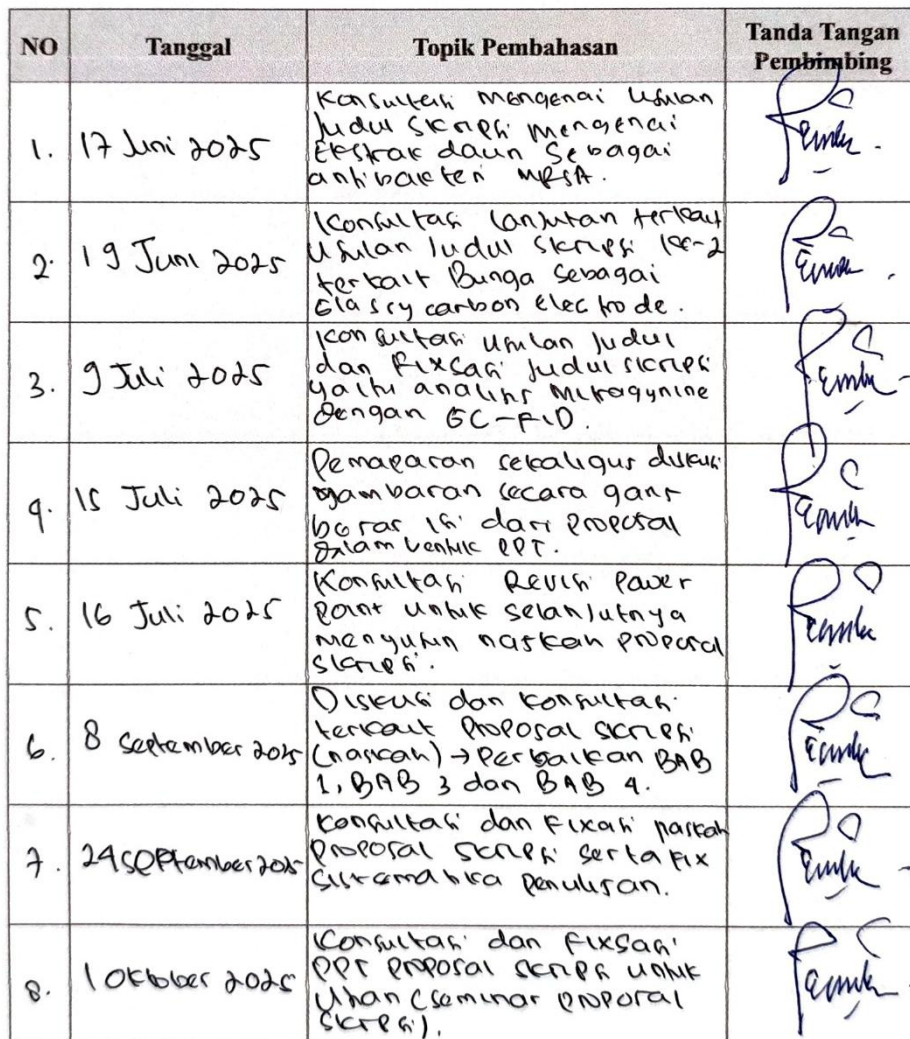 NO Tanggal Topik Pembahasan Tanda Tangan Pembimbing
1. 17 Juni 2025 Konsultasi mengenai Usulan
Judul Skripsi mengenai
Ekstrak daun Sebagai
antibakteri MRSA.
2. 19 Juni 2025 Konsultasi lanjutan terkait
Usulan Judul Skripsi ke-2
terkait Bunga Sebagai
Glassy carbon Electrode.
3. 9 Juli 2025 Konsultasi usulan judul
dan Fixsasi judul skripsi
yaitu analisis Mitragynine
dengan GC-FID.
4. 15 Juli 2025 Pemaparan sekaligus diskusi
gambaran secara garis
besar isi dari proposal
dalam bentuk PPT.
5. 16 Juli 2025 Konsultasi Revisi Power
Point untuk selanjutnya
menyusun naskah proposal
skripsi.
6. 8 September 2025 Diskusi dan konsultasi
terkait Proposal skripsi
(naskah) → Perbaikan BAB
1, BAB 3 dan BAB 4.
7. 24 September 2025 Konsultasi dan Fixasi naskah
Proposal Skripsi serta fix
Sistematika Penulisan.
8. 1 Oktober 2025 Konsultasi dan Fixsasi
PPT proposal skripsi untuk
Ujian (seminar proposal
skripsi).